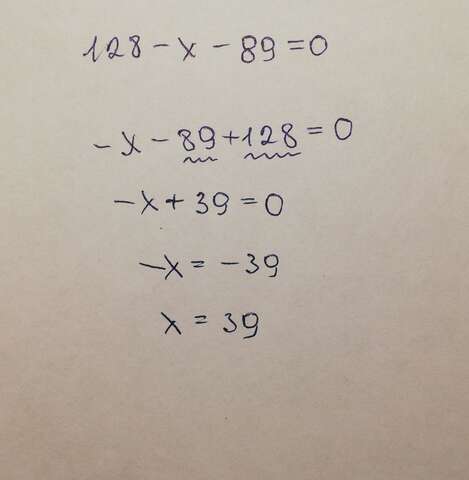 128 - x - 89 = 0
- x - 89 + 128 = 0
- x + 39 = 0
- x = - 39
x = 39